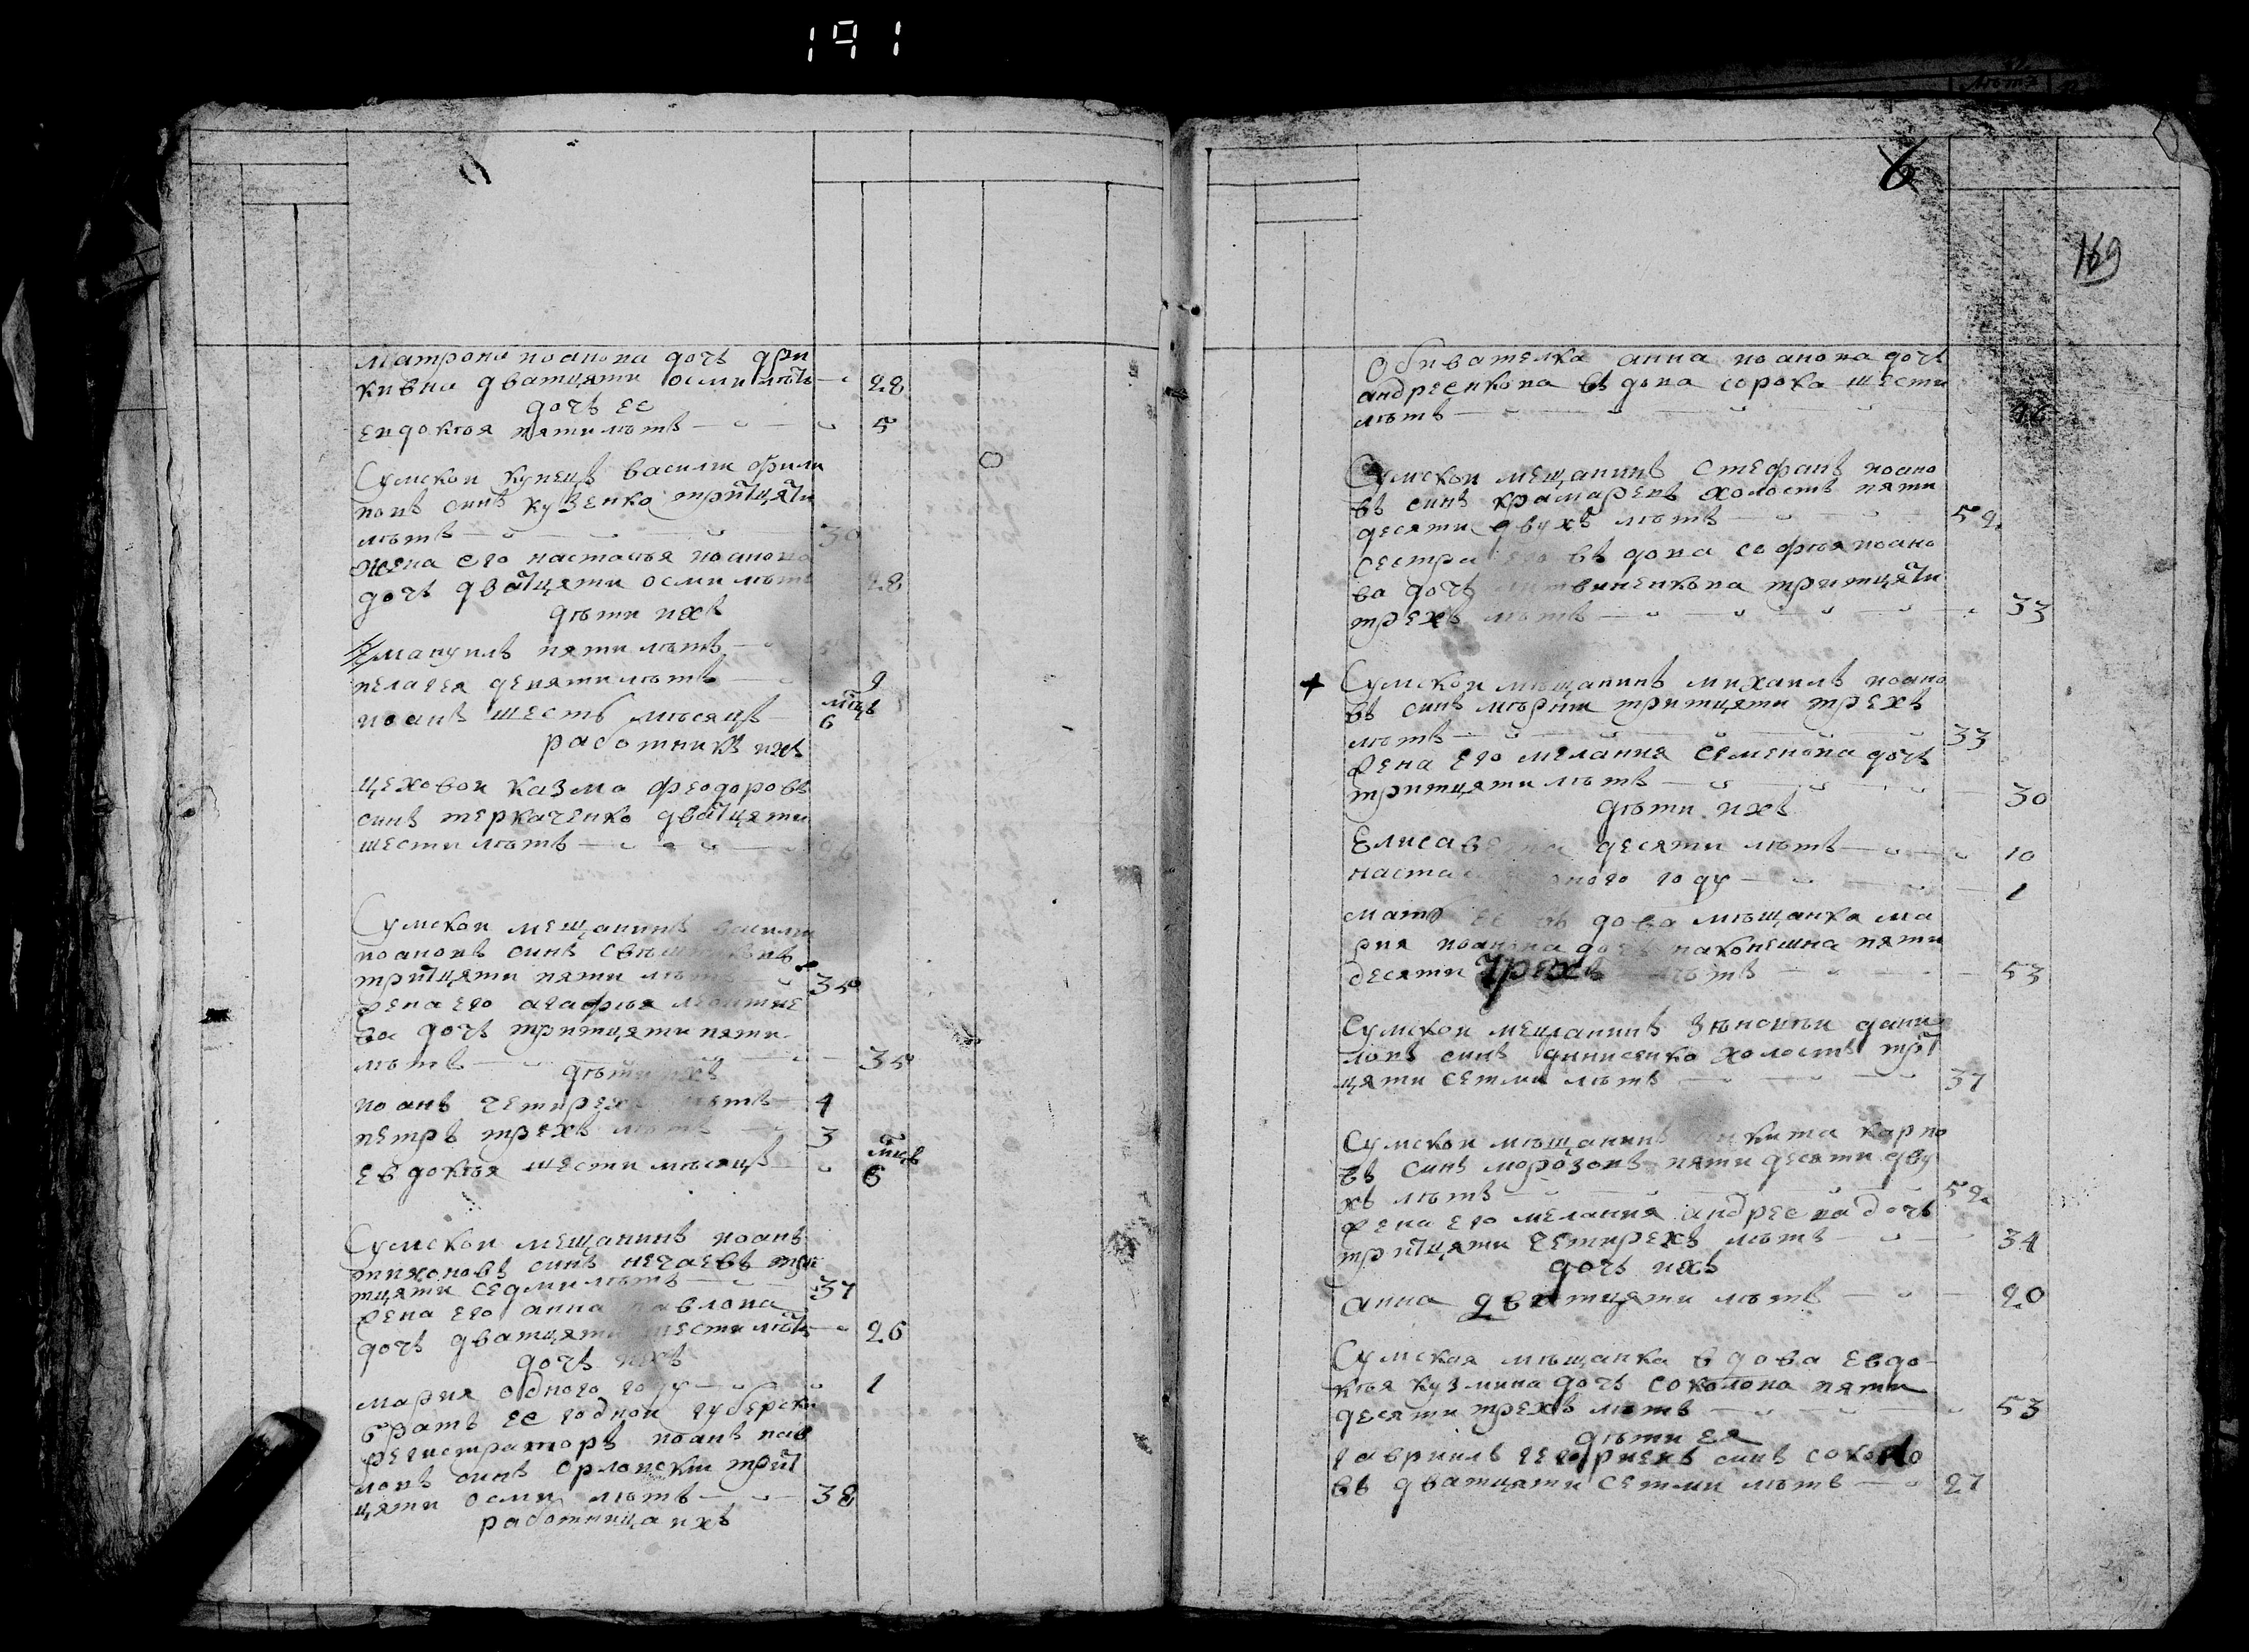 191
матрона иоанова дочъ
кивна дватцяти осми лѣтъ 28
дочь ее
евдокѣя пяти лѣтъ 5
Сумскои купецъ василий фили
повъ синъ кузенко трийцяти
лѣтъ 30
жена его настасья иоанова
дочъ двайцяти осми лѣтъ 28
дѣти ихъ
емануилъ пяти лѣтъ 5
пелагея девяти лѣтъ 9
мцъ
иоанъ шесть мѣсяцъ 6
работникъ ихъ
цеховои казма феодоровъ
синъ теркаченко двайцяти
шести лѣтъ 26
Сумскои мещанинъ василии
иоановъ синъ
трийцяти пяти лѣтъ 35
жена его агафѣя леонтие
ва дочъ тритцяти пяти
лѣтъ 35
дѣти ихъ
иоанъ четирехъ лѣтъ 4
петръ трехъ лѣтъ 3
мцъ
евдокѣя шести мѣсяцъ 6
Сумскои мещанинъ иоанъ
тихоновъ синъ нечаевъ три
тцяти седми лѣтъ 37
жена его анна павлова
дочъ дватцяти шести лѣтъ 26
дочъ ихъ
мария одного году 1
братъ ее родной губерски
регистраторъ иоанъ пав
ловъ синъ орловский трий
цяти осми лѣтъ 38
работница ихъ
6
169
Обивателка анна иоанова дочъ
андреенкова въдова сорока шести
лѣтъ 46
Сумскои мещанинъ стефанъ иоано
въ синъ крамаревъ холостъ пяти
десяти двухъ лѣтъ 52
сестра его въдова софѣя иоано
ва дочъ литвиненкова тритцяти
трехъ лѣтъ 33
Сумскои мѣщанинъ михаилъ иоано
въ синъ тритцяти трехъ
лѣтъ 33
жена его мелания семенова дочъ
тритцяти лѣтъ 30
дѣти ихъ
Елисавета десяти лѣтъ 10
наста одного году 1
мать ее въдова мѣщанка ма
рия иоанова дочъ пяти
десяти трехъ лѣтъ 53
Сумскои мещанинъ зѣновии дани
ловъ синъ динисенко холостъ трий
цяти сетми лѣтъ 37
Сумскои мѣщанинъ никита карпо
въ синъ морозовъ пяти десяти дву
хъ лѣтъ 52
жена его мелания андреева дочъ
трийцяти четирехъ лѣтъ 34
дочъ ихъ
анна дватцяти лѣтъ 20
Сумская мѣщанка вдова евдо
кѣя кузмина дочъ соколова пяти
десяти трехъ лѣтъ 53
дѣти ея
гавриилъ синъ соколо
въ дватцяти сетми лѣтъ 27